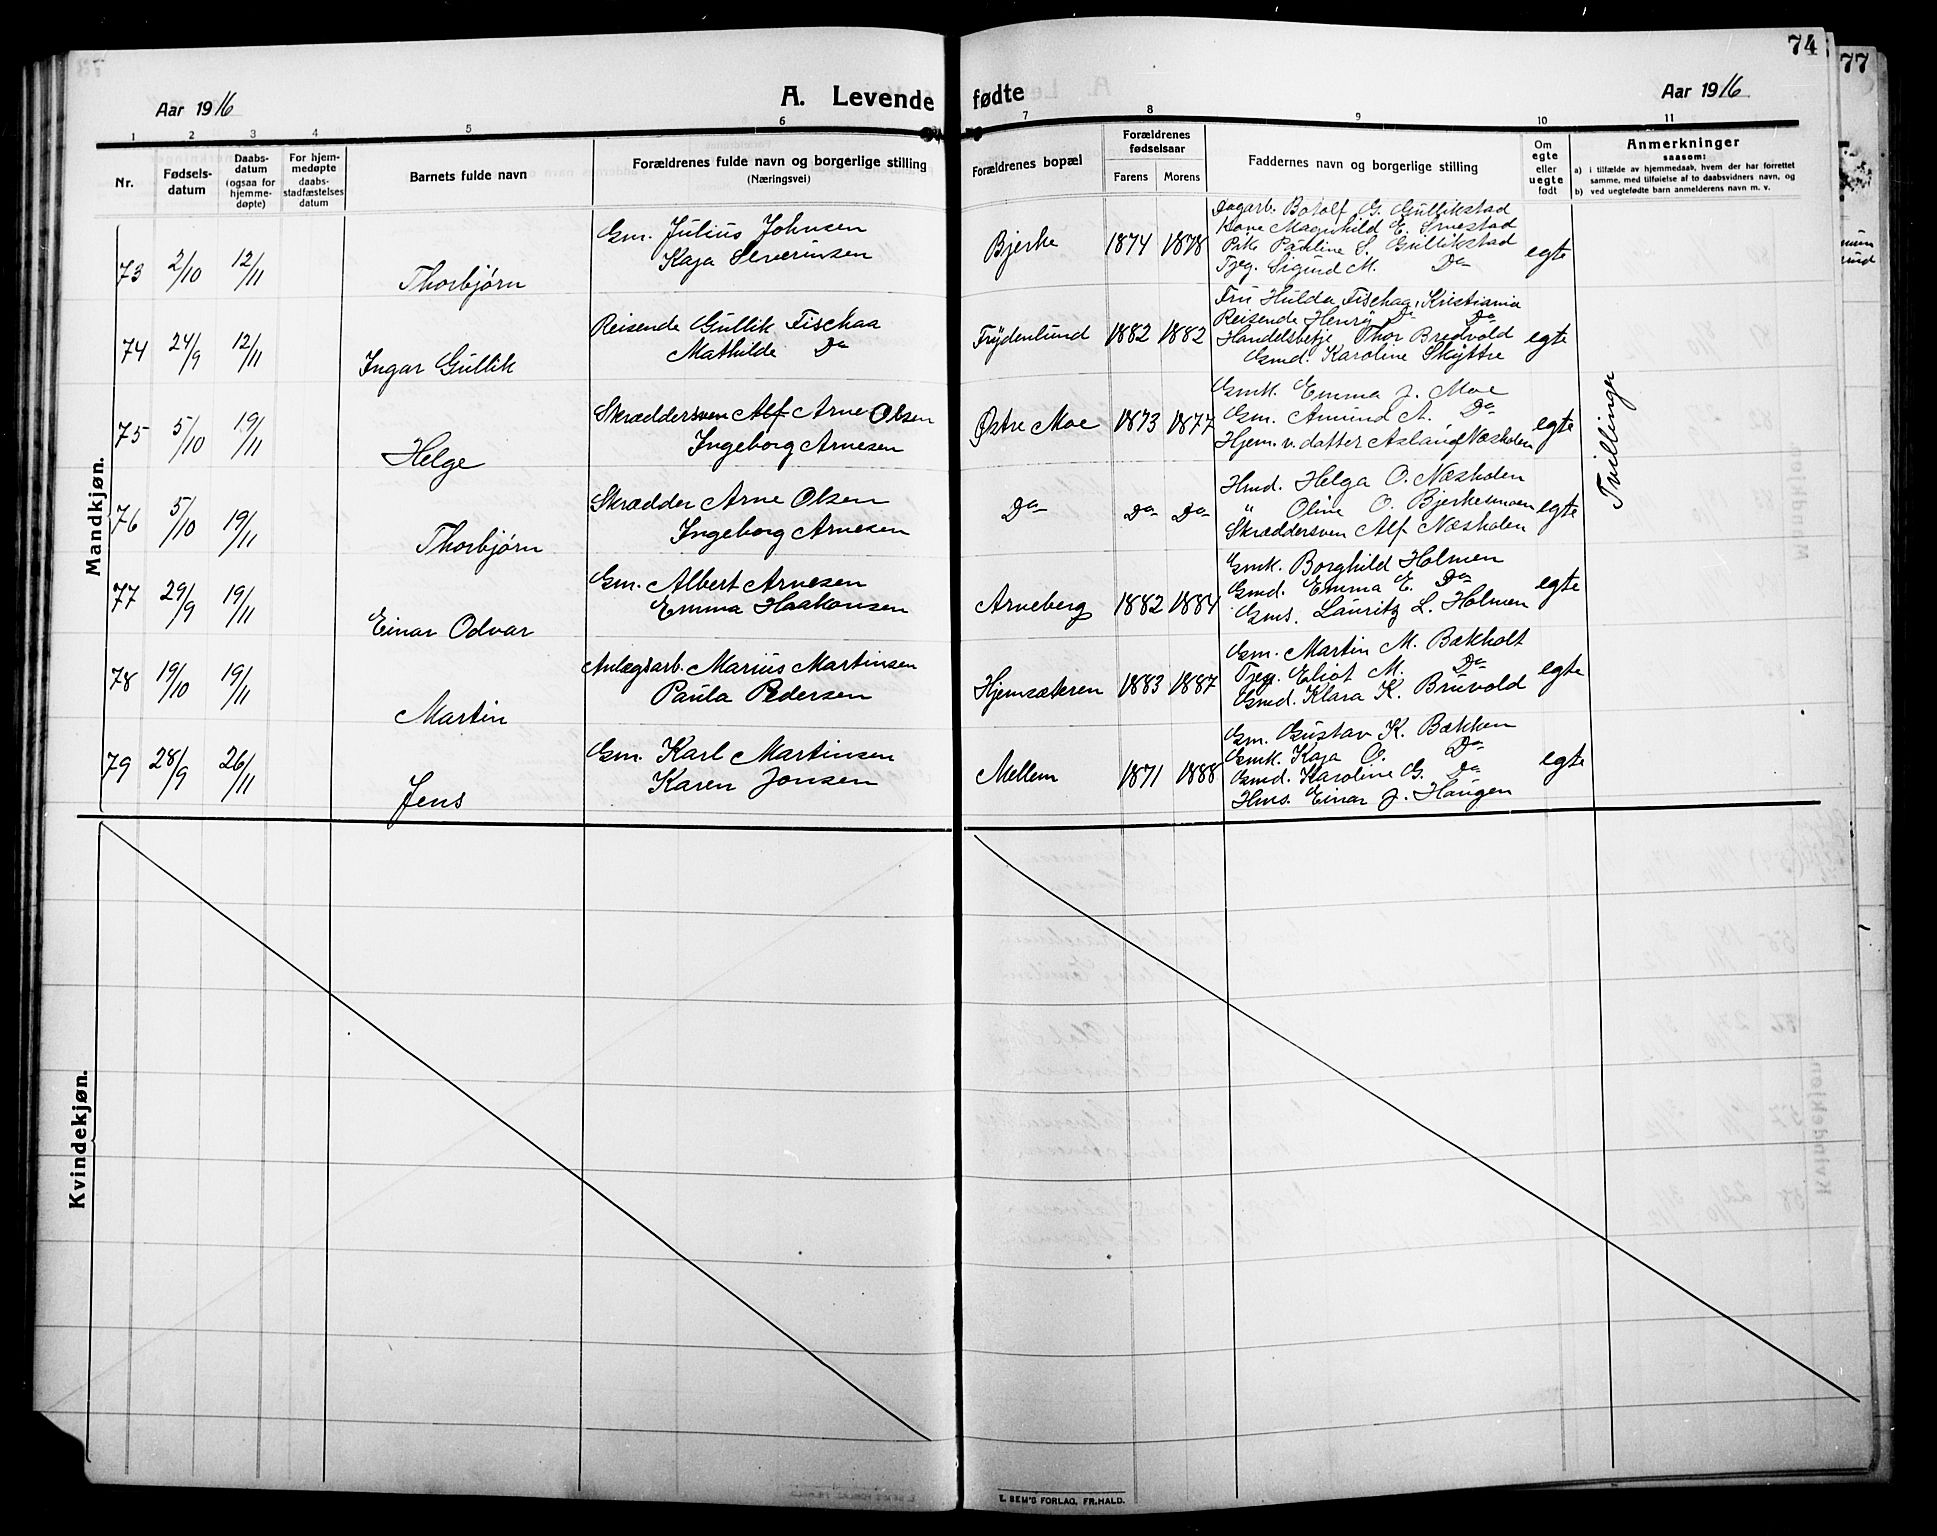 74
77
Aar 1916
A. Levende fødte
Aar 1916
1 2 3 4 5 6 7 8 9 10 11
Nr.
Fødsels-
datum
Daabs-
datum
(ogsaa for
hjemme-
døpte)
For hjem-
medøpte
daabs-
stadfæstelses
datum
Barnets fulde navn
Forældrenes fulde navn og borgerlige stilling
(Næringsvei)
Forældrenes bopæl
Forældrenes
fødselsaar
Farens Morens
Faddernes navn og borgerlige stilling
Om
egte
eller
uegte
født
Anmerkninger
saasom:
a) i tilfælde av hjemmedaab, hvem der har forrettet
samme, med tilføielse av to daabsvidners navn, og
b) ved uegtefødte barn anmelderens navn m. v.
Mandkjøn.
73 2/10 12/11 Thorbjørn
Gm. Julius Johnsen
Kaja Severinsen
Bjerke 1874 1878
Dagarb. Botolf G. Gullikstad
Kone Magnhild E.
Pike Pauline S. Gullikstad
Tjeg. Sigurd M. Do
egte
74 24/9 12/11 Ingar Gullik
Reisende Gullik Fischaa
Mathilde Do
Frydenlund 1882 1882
Fru Hulda Fischaa, Kristiania
Reisende Henry Do Do
Handelsbetje Thor Bredvold
Gmd. Karoline Skyttre
egte
75 5/10 19/11 Helge
Skræddersven Alf Arne Olsen
Ingeborg Arnesen
Østre Moe 1873 1877
Gmk. Emma J. Moe
Gm. Amund A. Do
Hjem. v. datter Aslaug Næsholen
egte
Tvillinger
76 5/10 19/11 Thorbjørn
Skrædder Arne Olsen
Ingeborg Arnesen
Do Do Do
Hmd. Helga O. Næsholen
" Oline O. Bjerkemoen
Skræddersven Alf Næsholen
egte
77 29/9 19/11 Einar Odvar
Gm. Albert Arnesen
Emma Haakonsen
Arneberg 1882 1884
Gmk. Borghild Holmen
Gmd. Emma E. Do
Gms. Lauritz L. Holmen
egte
78 19/10 19/11 Martin
Anlægsarb. Marius Martinsen
Paula Pedersen
Hjemsæteren 1883 1887
Gm. Martin M. Bækholt
Tjeg. Eliot M. Do
Gmd. Klara K. Bruvold
egte
79 28/9 26/11 Jens
Gm. Karl Martinsen
Karen Jonsen
Mellem 1871 1888
Gm. Gustav K. Bækken
Gmk. Kaja O. Do
Gmd. Karoline G. Do
Hms. Einar J. Haugen
egte
Kvindekjøn.
E. SEM'S FORLAG, FR.HALD.